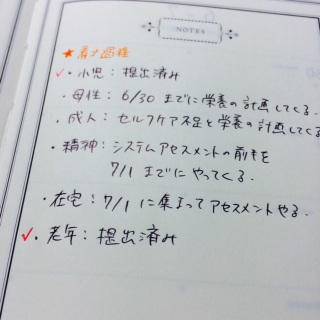 NOTES
★看護過程
✓・小児：提出済み
・母性：6/30までに栄養の計画してくる．
・成人：セルフケア不足と栄養の計画してくる
・精神：システムアセスメントの前までを
7/1までにやってくる．
・在宅：7/1に集まってアセスメントやる．
✓・老年：提出済み